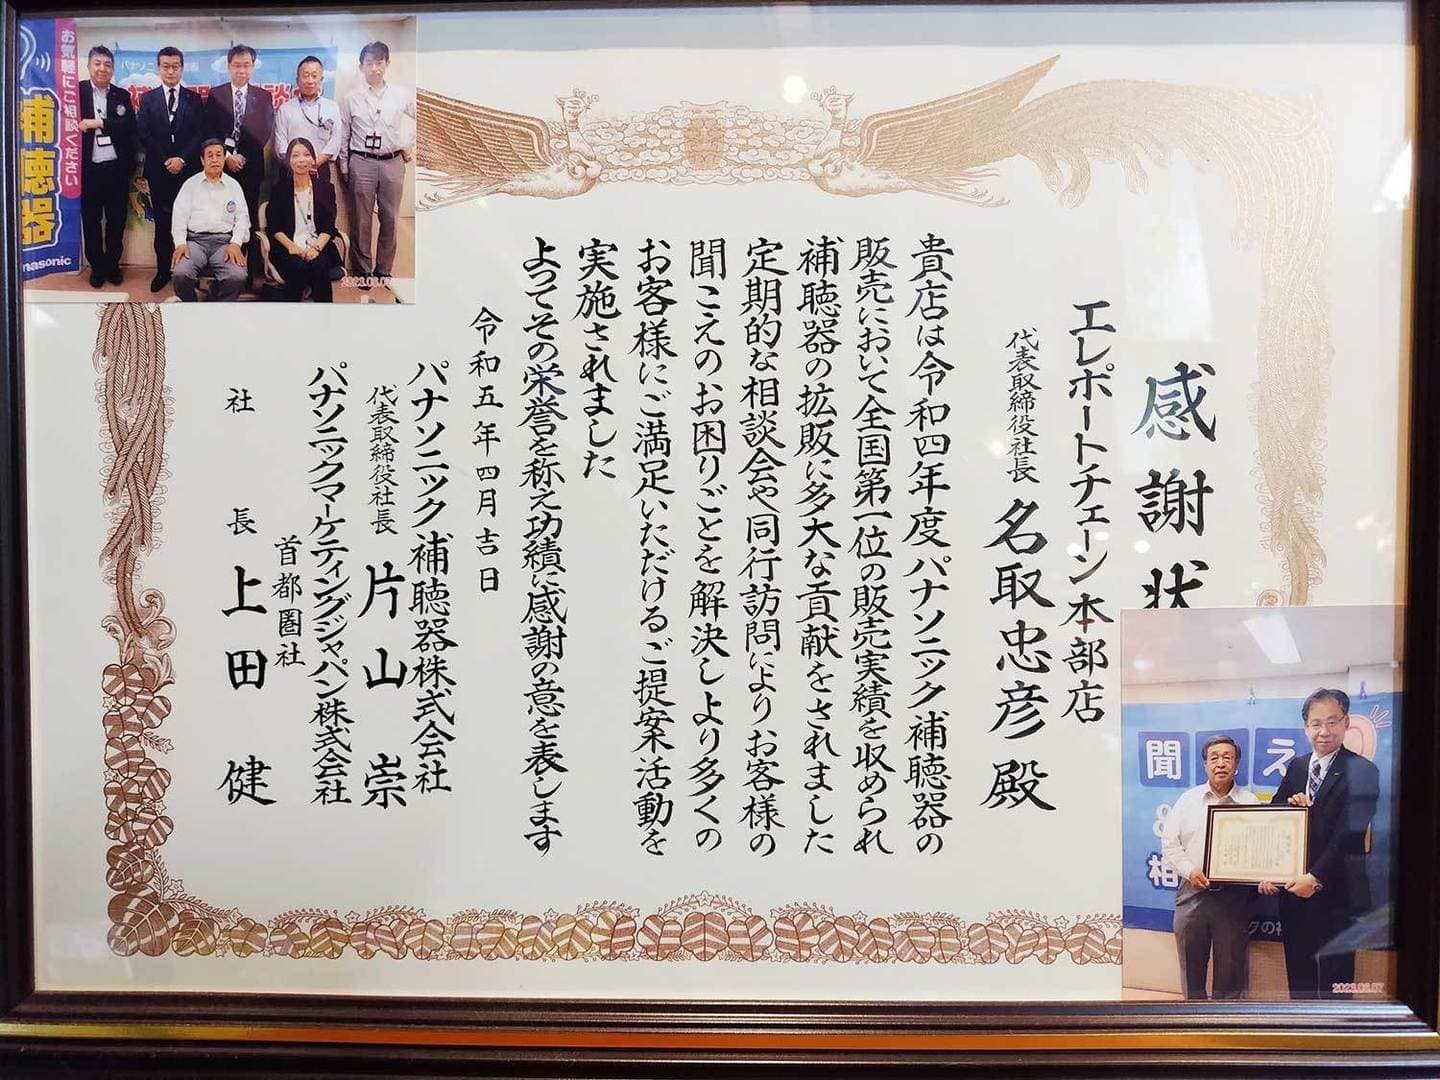 感謝状
エレポートチェーン本部店
代表取締役社長 名取忠彦殿
貴店は令和四年度パナソニック補聴器の
販売において全国第一位の販売実績を収められ
補聴器の拡販に多大な貢献をされました
定期的な相談会や同行訪問によりお客様の
聞こえのお困りごとを解決しより多くの
お客様にご満足いただけるご提案活動を
実施されました
よってその栄誉を称え功績に感謝の意を表します
令和五年四月吉日
パナソニック補聴器株式会社
代表取締役社長 片山崇
パナソニックマーケティングジャパン株式会社
首都圏社
社長 上田健
お気軽にご相談ください
補聴器
nasonic
パナソニ
談
聞 え
相
クの
2023.06.07